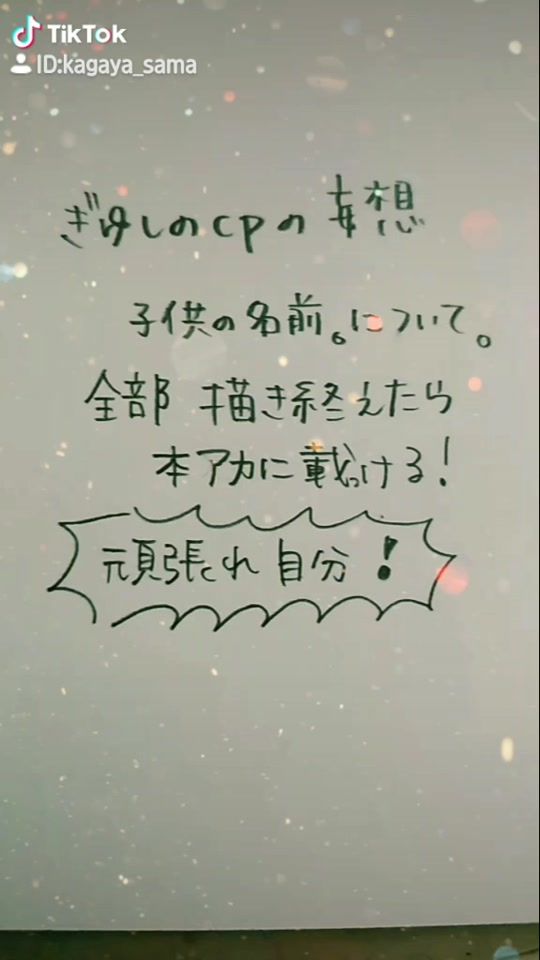 TikTok
ID:kagaya_sama
ぎゆしのcpの妄想
子供の名前。について。
全部 描き終えたら
本アカに載っける!
頑張れ 自分!